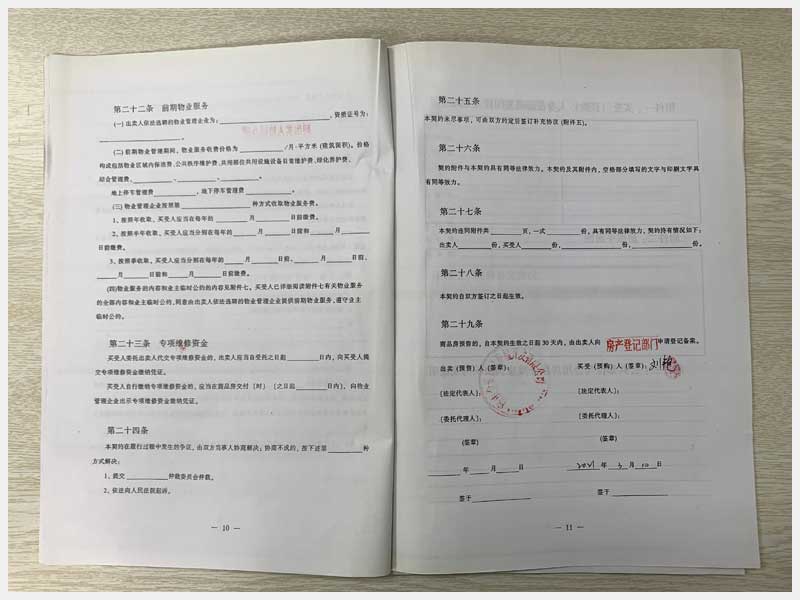 第二十二条　前期物业服务
(一) 出卖人依法选聘的物业管理企业为：，资质证号为：
。
(二) 前期物业管理期间，物业服务收费价格为 /月·平方米 (建筑面积)。价格
构成包括物业区域内保洁费、公共秩序维护费、共用部位共用设施设备日常维护费、绿化养护费、
综合管理费、、、。
地上停车管理费，地下停车管理费。
(三) 物业管理企业按照第 种方式收取物业服务费。
1、按照年收取，买受人应当在每年的 月 日前缴费。
2、按照半年收取，买受人应当分别在每年的 月 日前和 月
日前缴费。
3、按照季收取，买受人应当分别在每年的 月 日前、 月 日前、
月 日前和 月 日前缴费。
(四)物业服务的内容和业主临时公约的内容见附件七。买受人已详细阅读附件七有关物业服务
的全部内容和业主临时公约，同意由出卖人依法选聘的物业管理企业提供前期物业服务，遵守业主
临时公约。
第二十三条　专项维修资金
买受人委托出卖人代交专项维修资金的，出卖人应当自受托之日起 日内，向买受人提
交专项维修资金缴纳凭证。
买受人自行缴纳专项维修资金的，应当在商品房交付 [时] [之日起 日内]，向物业
管理企业出示专项维修资金缴纳凭证。
第二十四条
本契约在履行过程中发生的争议，由双方当事人协商解决；协商不成的，按下述第 种
方式解决：
1、提交 仲裁委员会仲裁。
2、依法向人民法院起诉。
— 10 —
第二十五条
本契约未尽事项，可由双方约定后签订补充协议 (附件五)。
第二十六条
契约的附件与本契约具有同等法律效力。本契约及其附件内，空格部分填写的文字与印刷文字具
有同等效力。
第二十七条
本契约连同附件共 页，一式 份，具有同等法律效力，契约持有情况如下：
出卖人 份，买受人 份， 份， 份。
第二十八条
本契约自双方签订之日起生效。
第二十九条
商品房预售的，自本契约生效之日起 30 天内，由出卖人向 房产登记部门 申请登记备案。
出卖（预售）人（签章）： 买受（预购）人（签章）：刘艳
[法定代表人]： [法定代表人]：
[委托代理人]： [委托代理人]：
(签章) (签章)
年 月 日 2021 年 3 月 10 日
签于 签于
— 11 —